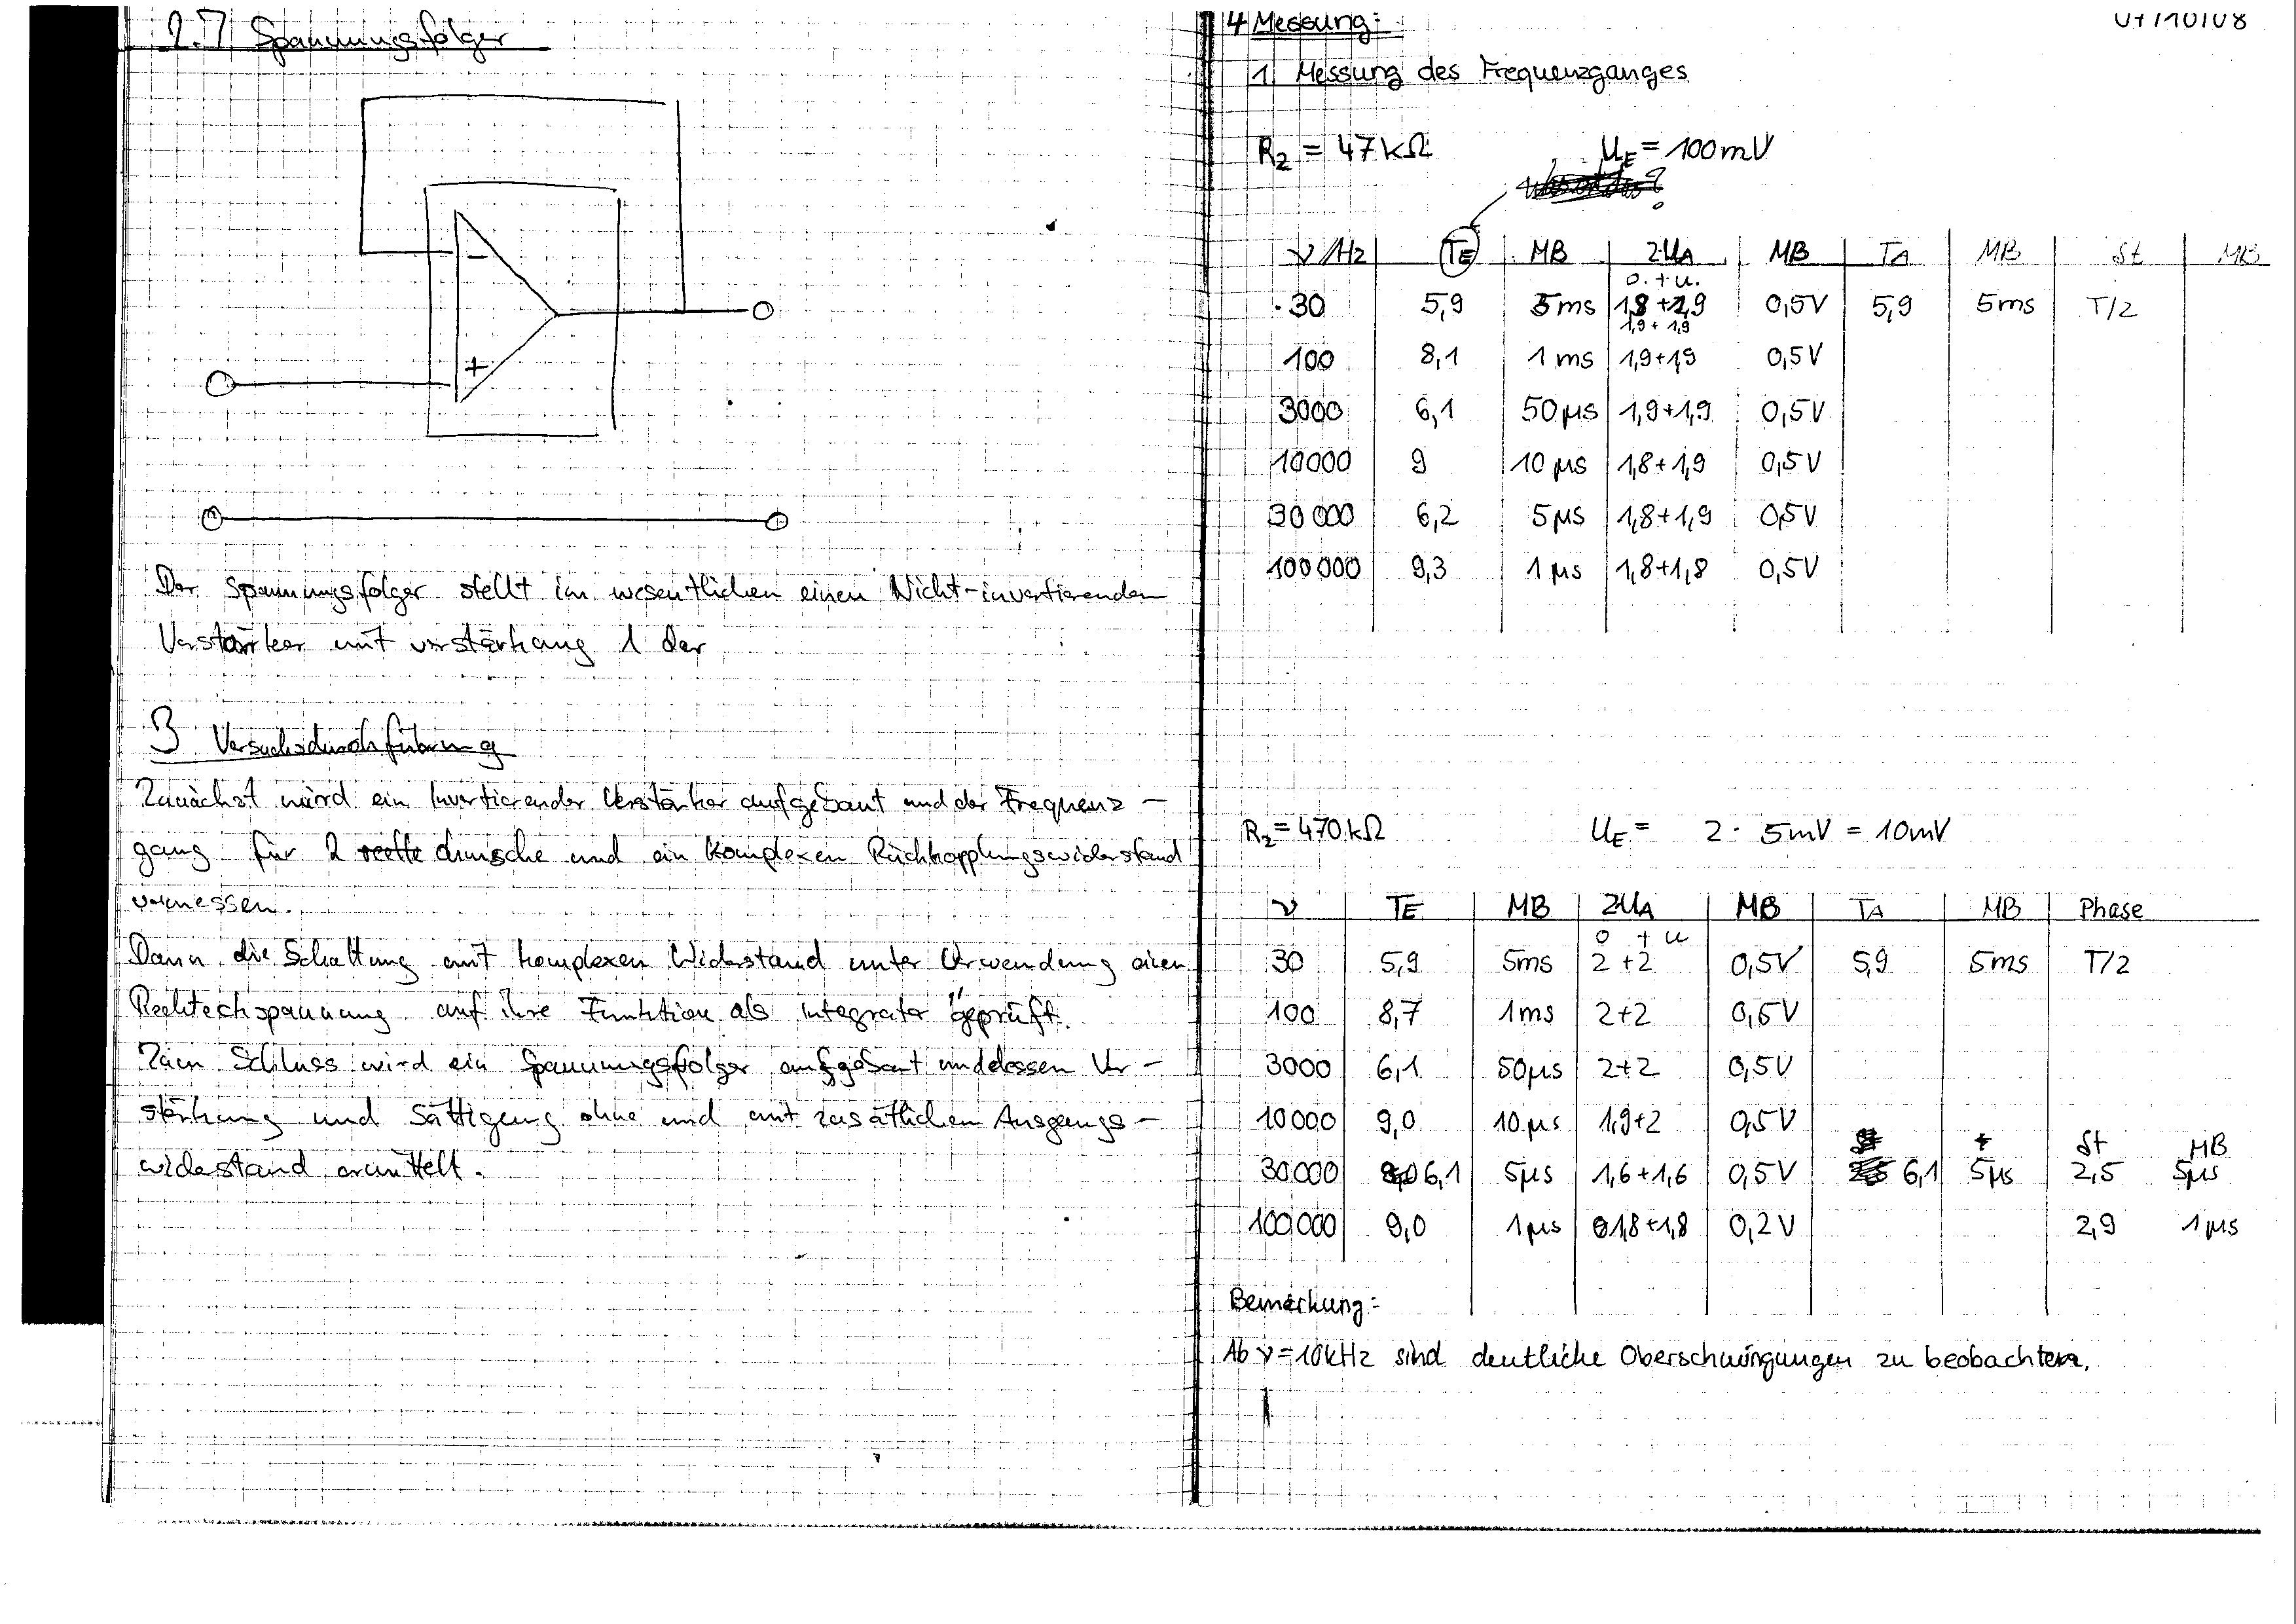 2.7 Spannungsfolger
-
+
Der Spannungsfolger stellt im wesentlichen einen Nicht-invertierenden
Verstärker mit verstärkung 1 der
3 Versuchsdurchführung
Zunächst wird ein Invertierender Verstärker aufgebaut und der Frequenz-
gang für 2 ohmsche und ein Komplexen Rückkopplungswiderstand
vermessen.
Dann die Schaltung mit komplexen Widerstand unter Verwendung einer
Rechteckspannung auf ihre Funktion als "Integrator" geprüft.
Zum Schluss wird ein Spannungsfolger aufgebaut und dessen Ver-
stärkung und Sättigung ohne und mit zusätlichen Ausgangs-
widerstand ermittelt.
07/10/08
4 Messung:
1) Messung des Frequenzganges
R2 = 47kΩ UE = 100mV
ν/Hz TE MB 2UA MB TA MB St MB
o. + u.
30 5,9 5ms 1,8+1,9 0,5V 5,9 5ms T/2
1,9+1,9
100 8,1 1ms 1,9+1,9 0,5V
3000 6,1 50µs 1,9+1,9 0,5V
10000 9 10µs 1,8+1,9 0,5V
30000 6,2 5µs 1,8+1,9 0,5V
100000 9,3 1µs 1,8+1,8 0,5V
R2 = 470kΩ UE = 2·5mV = 10mV
ν TE MB 2UA MB TA MB Phase
o + u
30 5,9 5ms 2+2 0,5V 5,9 5ms T/2
100 8,7 1ms 2+2 0,5V
3000 6,1 50µs 2+2 0,5V
10000 9,0 10µs 1,9+2 0,5V
St MB
30000 6,1 5µs 1,6+1,6 0,5V 6,1 5µs 2,5 5µs
100000 9,0 1µs 1,8+1,8 0,2V 2,9 1µs
Bemerkung:
Ab ν=10kHz sind deutliche Oberschwingungen zu beobachten.